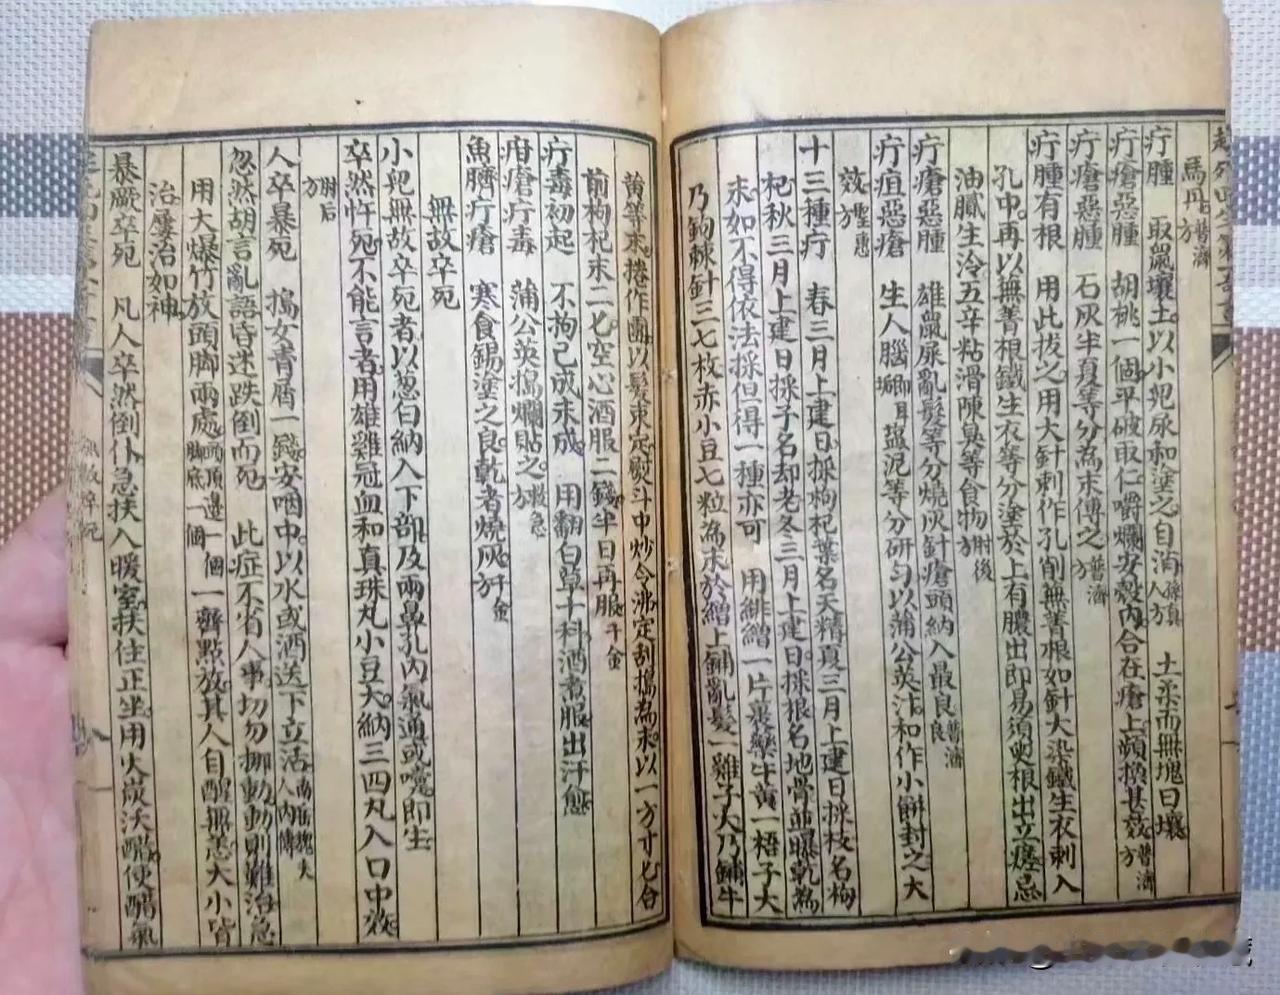 馬丹方普濟
疔腫　取鼠壤土以小兒尿和塗之自消孫真人方　土柔而無塊曰壤
疔瘡惡腫　胡桃一個平破取仁嚼爛安殼內合在瘡上頻換甚效普濟方
疔瘡惡腫　石灰半夏等分為末傅之普濟方
疔腫有根　用此拔之用大針刺作孔削無菁根如針大染鐵生衣刺入
孔中再以無菁根鐵生衣等分塗於上有膿出即易須臾根出立瘥忌
油膩生冷五辛粘滑陳臭等食物肘後方
疔瘡惡腫　雄鼠屎亂髮等分燒灰針瘡頭納入最良普濟良
疔疽惡瘡　生人腦即耳塪鹽泥等分研勻以蒲公英汁和作小餅封之大
效聖惠方
十三種疔　春三月上建日採枸杞葉名天精夏三月上建日採枝名枸
杞秋三月上建日採子名却老冬三月上建日採根名地骨並曝乾為
末如不得依法採但得一種亦可　用緋繒一片裹藥牛黃一梧子大
乃鉤棘針三七枚赤小豆七粒為末於繒上鋪亂髮一雞子大乃鋪牛
黃等末捲作團以髮束定熨斗中炒令沸定刮搗為末以一方寸匕合
前枸杞末二匕空心酒服二錢半日再服千金
疔毒初起　不拘已成未成　用翻白草十科酒煮服出汗愈
疳瘡疔毒　蒲公英搗爛貼之救急方
魚臍疔瘡　寒食餳塗之良乾者燒灰千金方
無故卒死
小兒無故卒死者以葱白納入下部及兩鼻孔內氣通或嚏即生
卒然忤死不能言者用雄雞冠血和真珠丸小豆大納三四丸入口中效
肘后方
人卒暴死　搗女青屑一錢安咽中以水或酒送下立活南嶽魏夫人內傳
忽然胡言亂語昏迷跌倒而死　此症不省人事切勿挪動動則難治急
用大爆竹放頭脚兩處頭頂兩邊一個脚底一個一齊點放其人自醒無恙大小皆
治屢治如神
暴厥卒死　凡人卒然倒仆急扶入暖室扶住正坐用火炭沃醋使醋氣